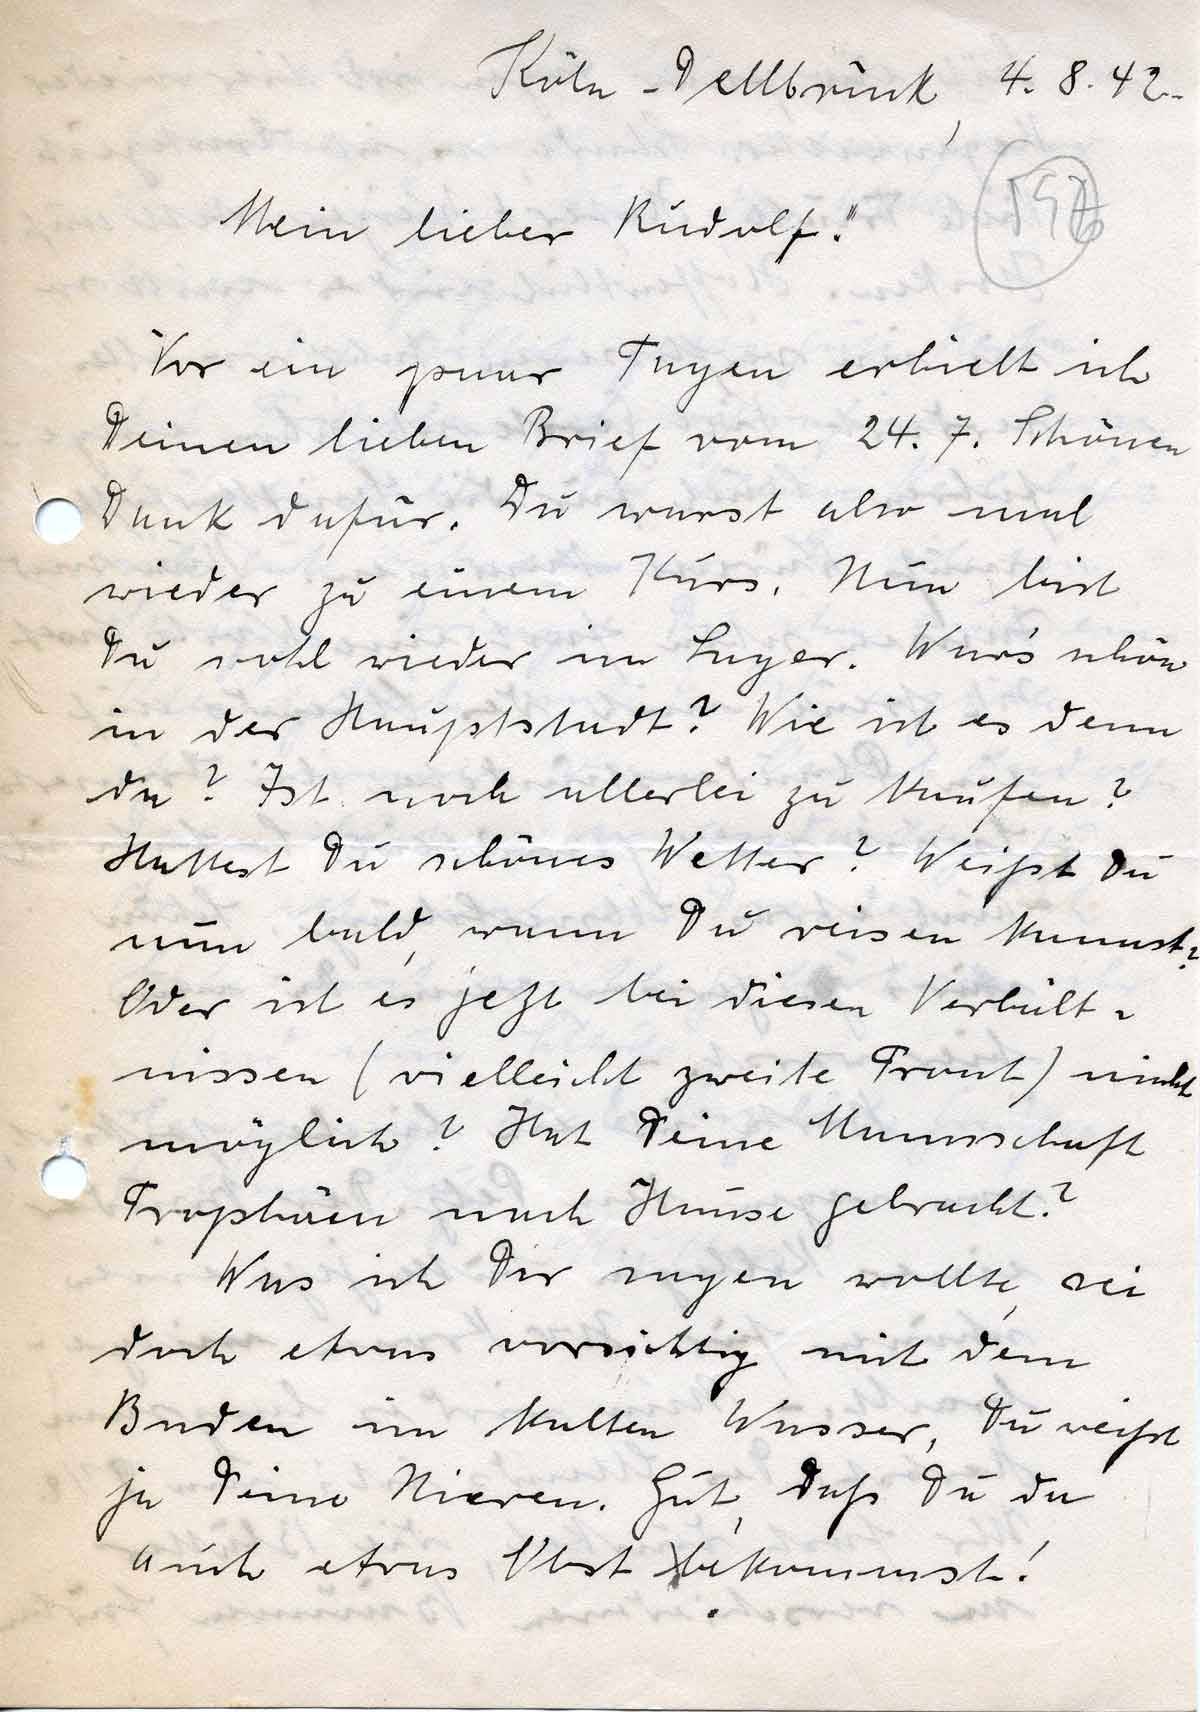 Köln-Dellbrück, 4. 8. 42.
Mein lieber Rudolf!
Vor ein paar Tagen erhielt ich
Deinen lieben Brief vom 24. 7. Schönen
Dank dafür. Du warst also mal
wieder zu einem Kurs. Nun bist
Du wohl wieder im Lager. War's schön
in der Hauptstadt? Wie ist es denn
da? Ist noch allerlei zu kaufen?
Hattest Du schönes Wetter? Weißt Du
nun bald, wann Du reisen kannst?
Oder ist es jetzt bei diesen Verhält-
nissen (vielleicht zweite Front) nicht
möglich? Hat Deine Mannschaft
Trophäen nach Hause gebracht?
Was ich Dir sagen wollte, sei
doch etwas vorsichtig mit dem
Baden im kalten Wasser, Du weißt
ja Deine Nieren. Gut, daß Du da
auch etwas Obst bekommst!